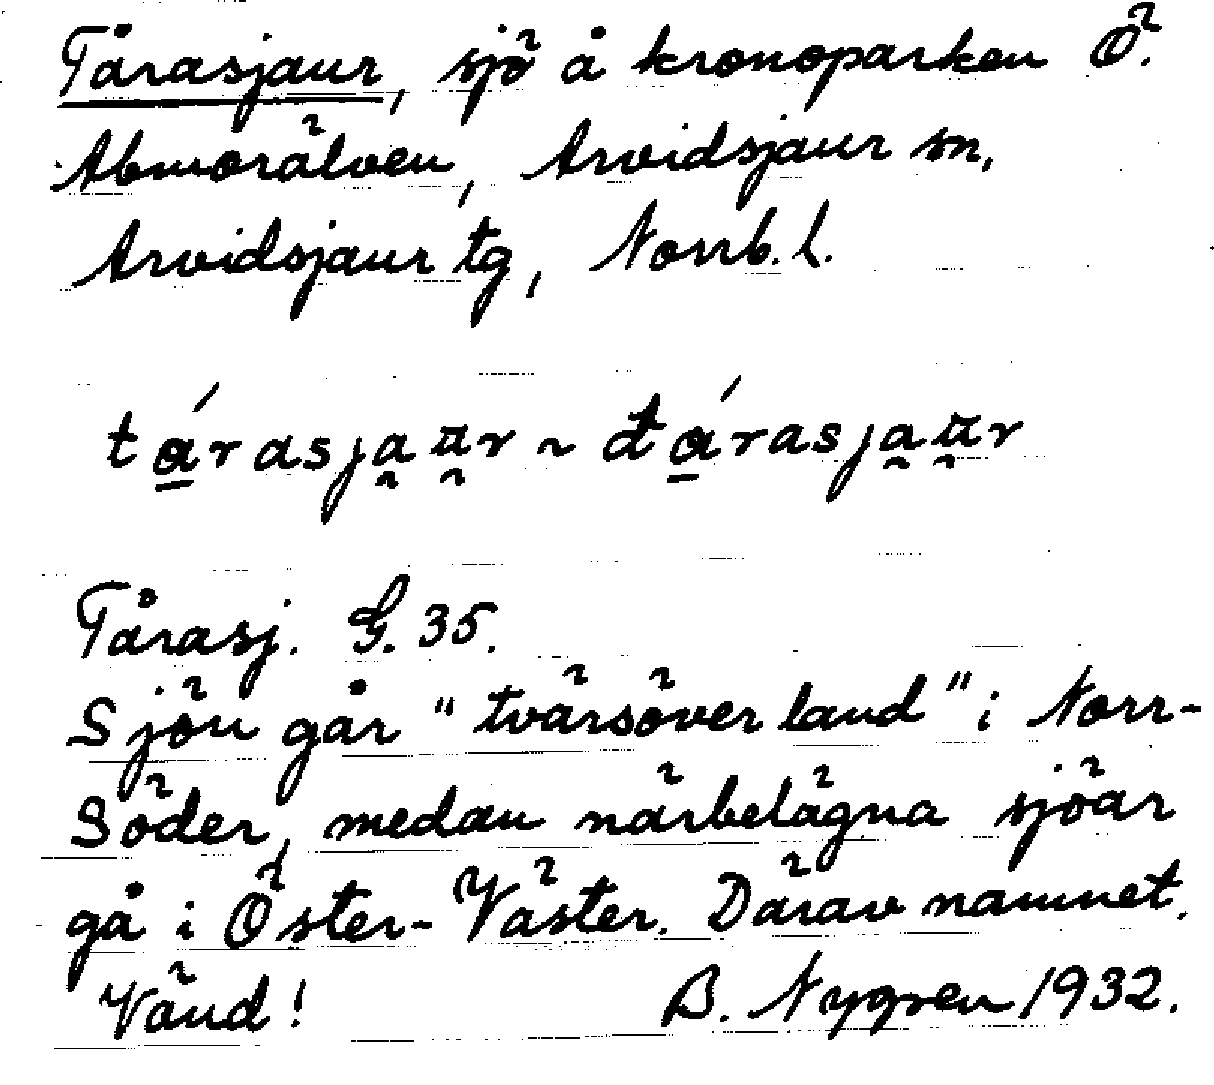 Tårasjaur, sjö å kronoparken Ö.
Abmorälven, Arvidsjaur sn,
Arvidsjaur tg, Norrb. l.
tá̱rasja̰ṵr ~ đá̱rasja̰ṵr
Tårasj. G. 35.
Sjön går "tvärsöver land" i Norr-
Söder, medan närbelägna sjöar
gå i Öster-Väster. Därav namnet.
Vänd! B. Nygren 1932.